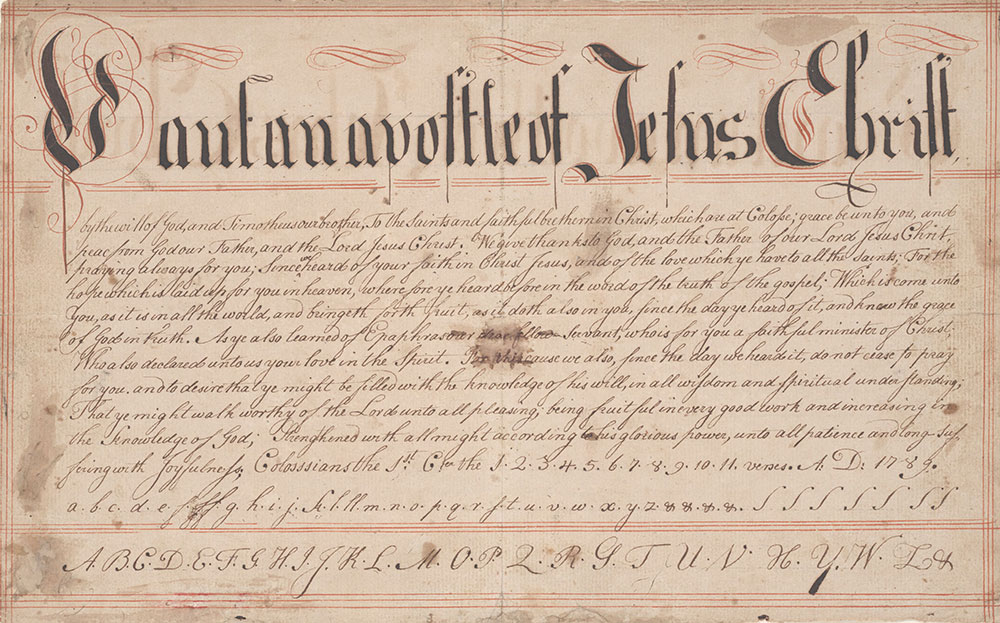 Paul an apostle of Jesus Christ,
by the will of God, and Timotheus our brother, To the Saints and faithful brethern in Christ, which are at Colosse; grace be unto you, and
peac from God our Father, and the Lord Jesus Christ. We give thanks to God, and the Father of our Lord Jesus Christ,
praying always for you; Since we heard of your faith in Christ Jesus, and of the love which ye have to all the Saints; For the
hope which is laid up for you in heaven, where fore ye heard before in the word of the truth of the gospel; Which is come unto
You, as it is in all the world, and bringeth forth fruit, as it doth also in you, since the day ye heard of it, and knew the grace
of God in truth. As ye also learned of Epaphras our dear fellow servant, who is for you a faithful minister of Christ,
Who also declared unto us your love in the Spirit. For this cause we also, since the day we heard it, do not cease to pray
for you, and to desire that ye might be filled with the knowledge of his will, in all wisdom and spiritual under standing;
That ye might walk worthy of the Lord unto all pleasing; being fruitful in every good work and increasing in
the Knowledge of God; Strengthened with all might according to his glorious power, unto all patience and long-suf
firing with Joyfulness; Colosssians the 1st. Cr the 1. 2. 3. 4. 5. 6. 7. 8. 9. 10. 11. verses. A: D: 1789.
a. b. c. d. e. f. ff. g. h. i. j. k. l. ll. m. n. o. p. q. r. s. t. u. v. w. x. y. z. &. &. &. &. S S S S S S S
A. B. C. D. E. F. G. H. I. J. K. L. M. O. P. Q. R. S. T U. V. X. Y. W. Z &